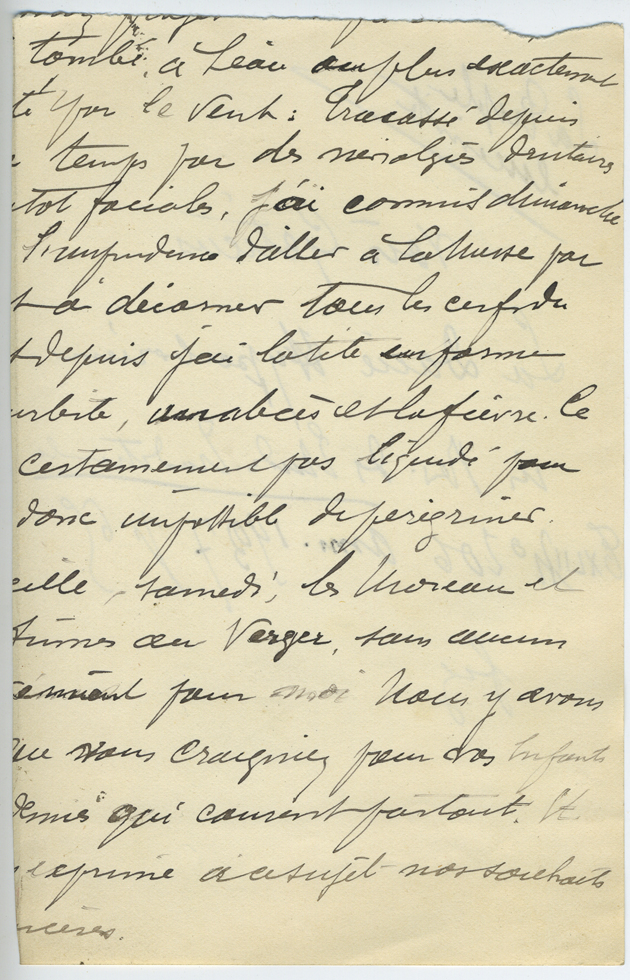 tombé, à l'eau ou plus exactement
té par le vent : Tracassé depuis
temps par des névralgies dentaires
tôt faciales, j'ai commis dimanche
l'imprudence d'aller à la Musse par
à décorner tous les cerfs du
depuis j'ai la tête
un abcès et la fièvre. Ce
certainement pas liquidé pour
donc impossible de pérégriner.
eille, samedi, les Moreau et
fûmes au Verger, sans aucun
ément pour moi Nous y avons
que vous craigniez pour vos Enfants
démie qui courent partout.
exprime à ce sujet nos souhaits
ncères.